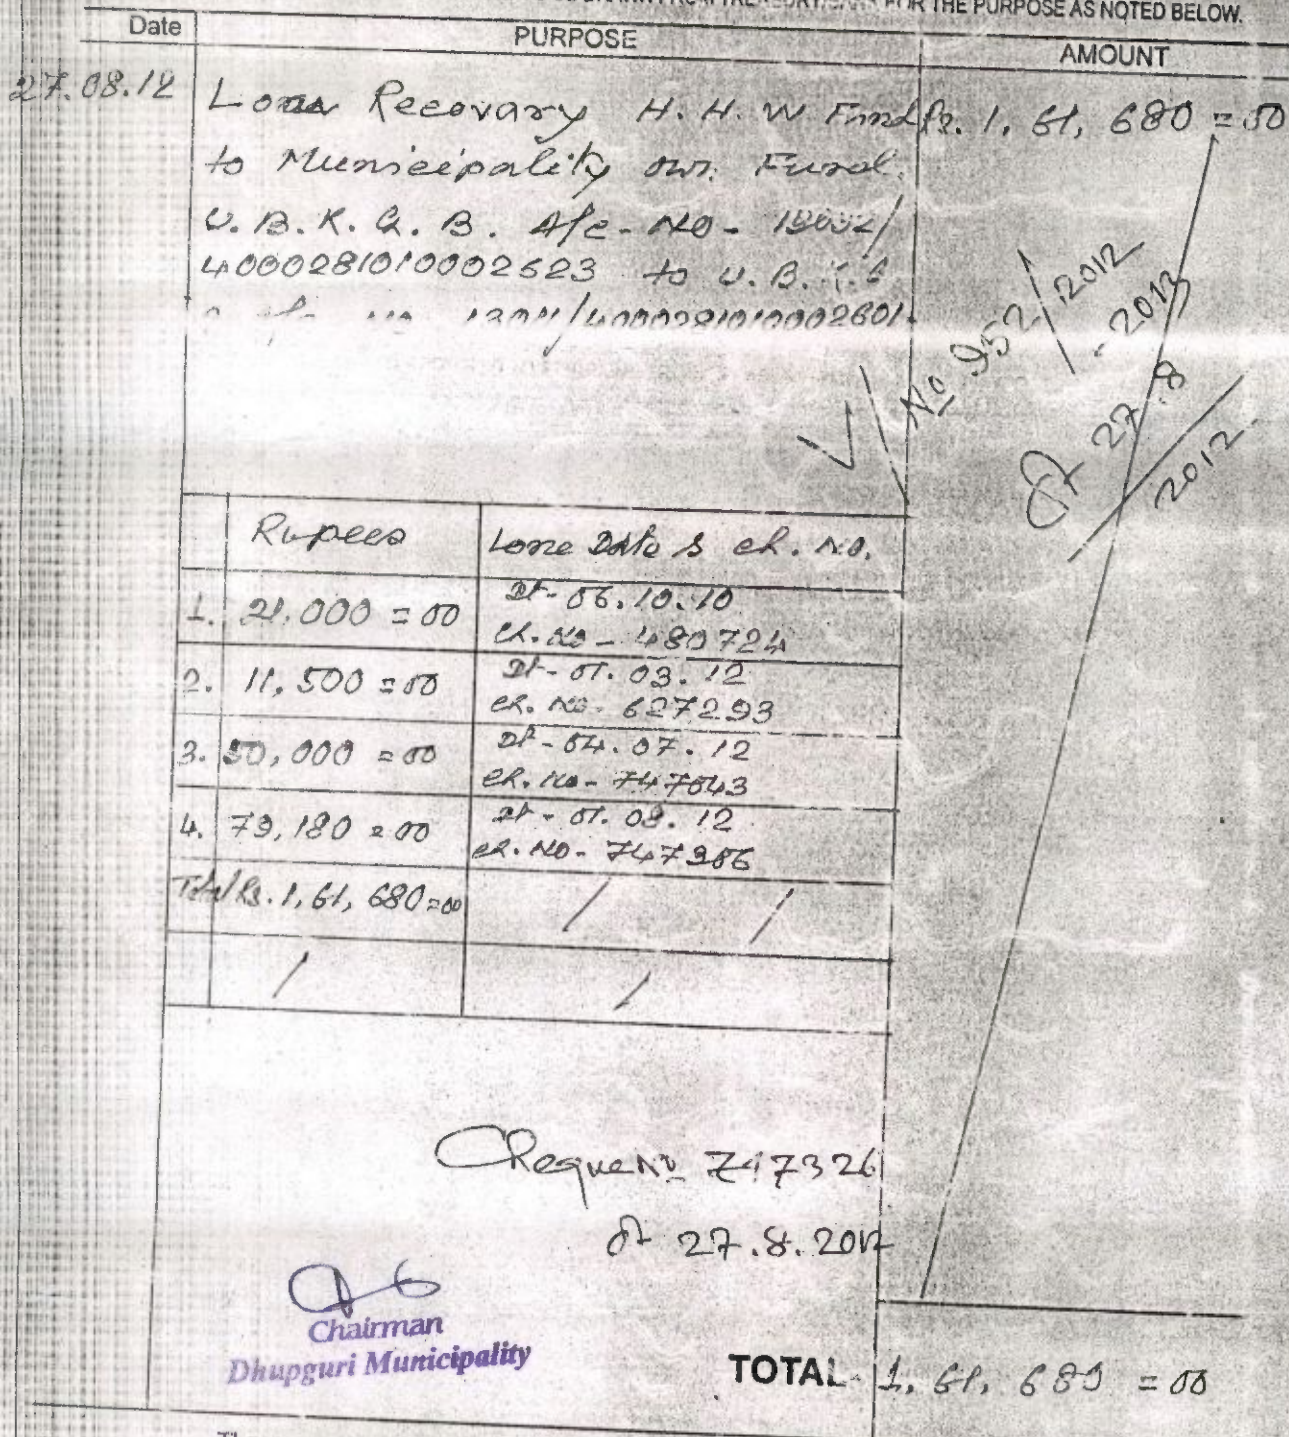 FOR THE PURPOSE AS NOTED BELOW.
Date PURPOSE AMOUNT
27.08.12 Loan Recovary H. H. W Fund Rs. 1, 61, 680 = 00
to Municipality own Fund.
U. B. K. G. B. A/c - No -
4000281010002623 to U. B. K. G
/4000281010002601.
No 952/2012
- 2013
dt 27.8
2012
Rupees Lone Date & ch. No.
1. 21,000 = 00 Dt - 06.10.10
ch. No - 480724
2. 11,500 = 00 Dt - 01.03.12
ch. No - 627293
3. 50,000 = 00 Dt - 04.07.12
ch. No - 747043
4. 79,180 = 00 Dt - 01.08.12
ch. No -
Total Rs. 1, 61, 680 = 00
Cheque No 747326
dt 27.8.2012
Chairman
Dhupguri Municipality
TOTAL 1, 61, 680 = 00